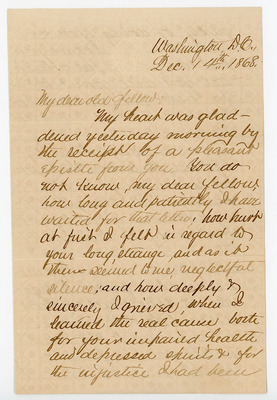 Washington, D.C.,
Dec. 14th, 1868.
My dear old fellow:
My heart was glad-
dened yesterday morning by
the receipt of a pleasant
epistle from you. You do
not know, my dear fellow
how long and patiently I have
waited for that letter; how hurt
at first I felt in regard to
your long, strange, and as it
then seemed to me, neglectful
silence; and how deeply &
sincerely I grieved, when I
learned the real cause both
for your impaired health
and depressed spirits & for
the injustice I had been